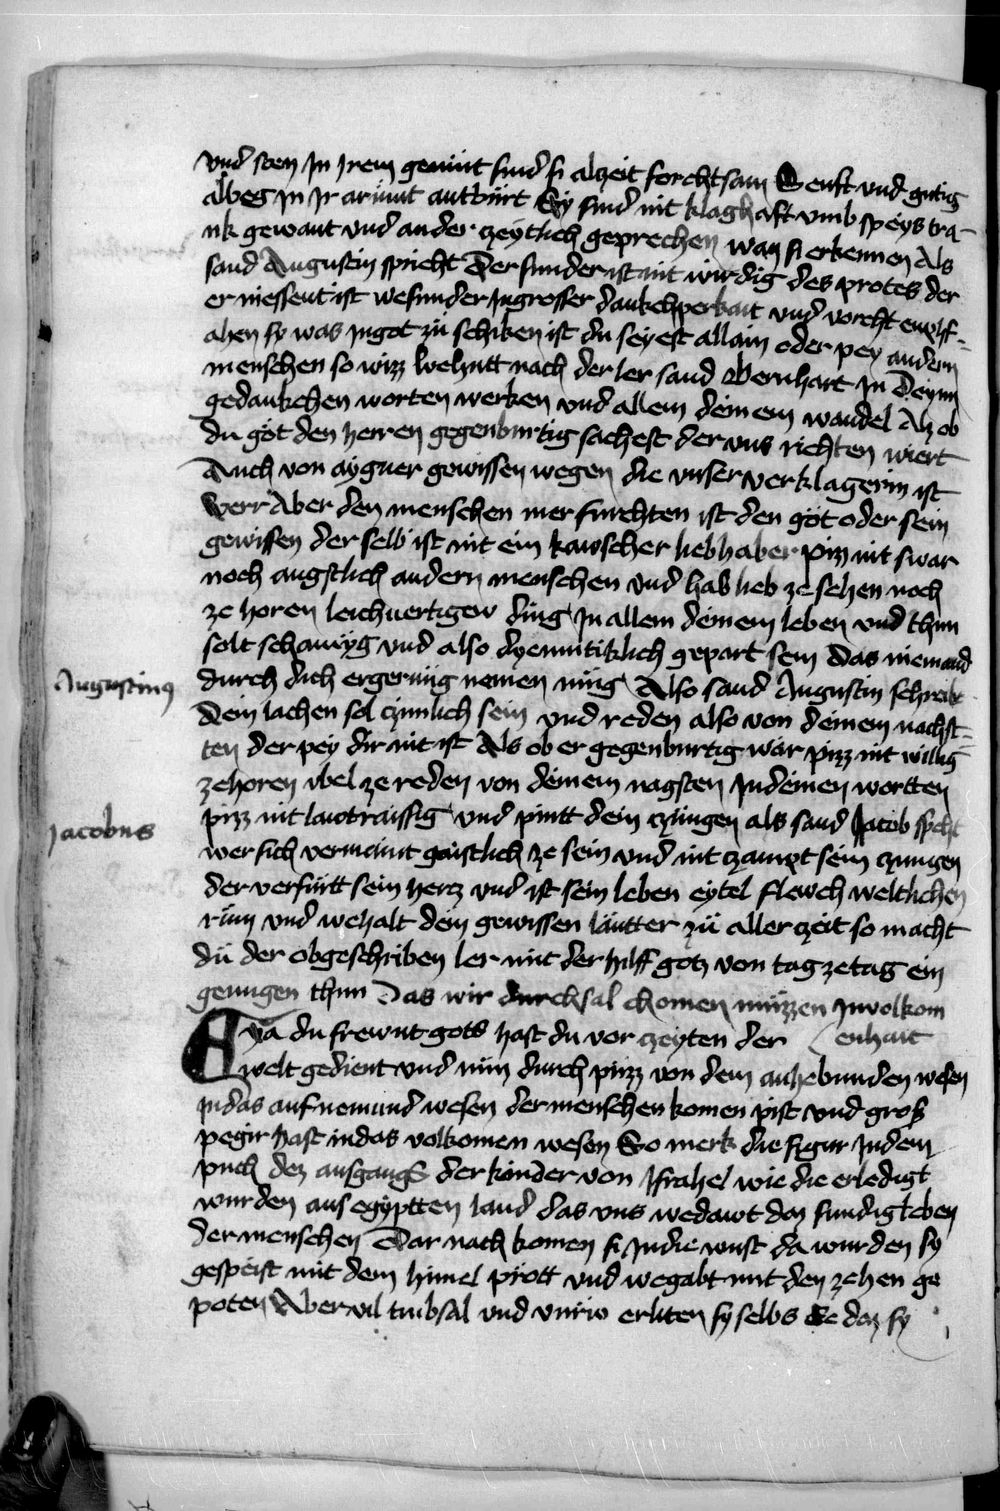 vnd sten Jn Jrem gemüt sind si alzeit forchtsam Senft vnd gutig
albeg Jn Jr armut Sy sind nit klaghaft vmb speys tra-
nk gewant vnd ander czeytlich geprechen wan si erkennen Als
sand Augustin spricht Der sunder ist nit wirdig des protes der
er niessent ist wesunder Jn grosser dankchperkait vnd vorcht enpf-
ahen sy was Jn got zü schiken ist du seyest allain oder pey andern
menschen so wizz wehutt nach der ler sand Bernhart Jn Deynn
gedankchen worten werken vnd allem deinem wandel Alz ob
du got den herren gegenburtig sachest der vns richten wiert
Auch von aygner gewissen wegen die vnser verklagerin ist
Werr Aber den menschen mer furchten ist den got oder sein
gewissen der selb ist nit ein kawscher liebhaber pizz nit swar
noch angstlich andern menschen vnd hab lieb ze sehen noch
ze horen leichuertigew ding Jn allem deinem leben vnd thun
solt schamyg vnd also dyemutiklich gepart sein Das niemand
Augustinus
durch dich ergerung nemen müg Also sand Augustin schreibt
Dein lachen sol czimlich sein vnd reden also von deinem nachst-
ten der pey dir nit ist Als ob er gegenburtig wär pizz nit willig
ze horen vbel ze reden von deinem nagsten Jn deinen wortten
Jacobus
pizz nit lawtraissig vnd pintt dein czungen als sand Jacob spricht
wer sich vermaint gaistlich ze sein vnd nit czampt sein czungen
der verfürtt sein hercz vnd ist sein leben eytel flewch weltlichen
rüm vnd wehalt dein gewissen lautter zü aller czeit so macht
dü der obgeschriben ler mit der hilff gotz von tag ze tag ein
genugen thun Das wir durch sal chomen müzzen Jn volkom
enhait
Eya du frewnt gots hast du vor czeyten der
welt gedient vnd nün durch puzz von dem anhebunden wesen
in das aufnemund wesen der menschen komen pist vnd gross
pegir hast in das volkomen wesen So merk die figur Jn dem
puch dez ausgangs der kinder von Jsrahel wie die erledigt
wurden aus egyptten land das vns wedawt daz sundig leben
der menschen Dar nach komen si Jn die wust da wurden sy
gespeist mit dem himel prott vnd wegabt mit den zehen ge
poten Aber vil trubsal vnd vnrw erliten sy selbs Ee daz sy